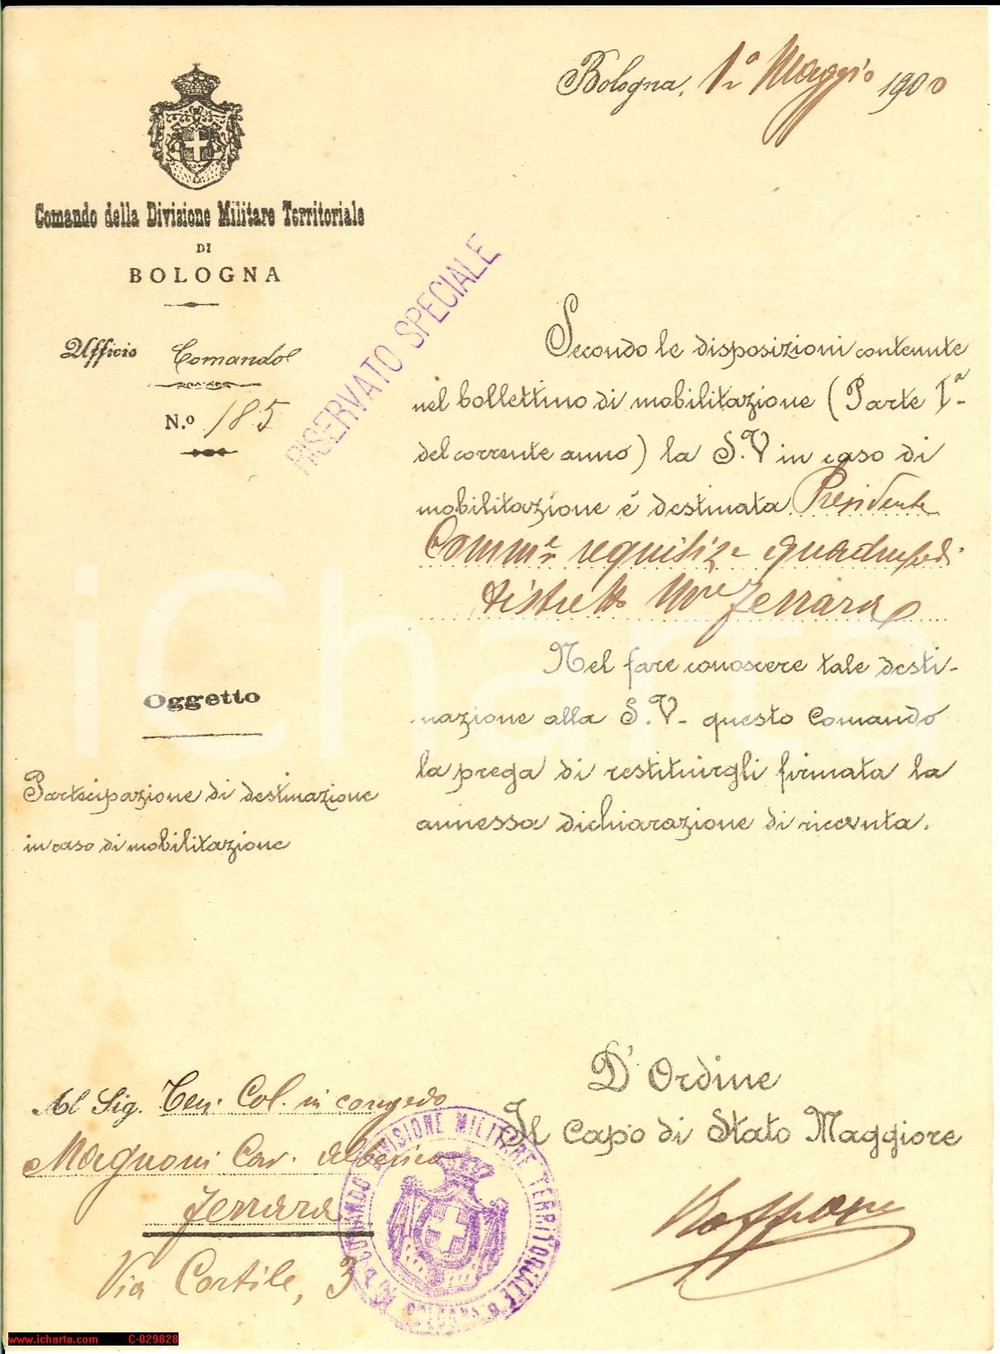 Bologna, 1º Maggio 1900
Comando della Divisione Militare Territoriale
DI
BOLOGNA
Ufficio Comando
N.º 185
RISERVATO SPECIALE
Secondo le disposizioni contenute
nel bollettino di mobilitazione (Parte Iª
del corrente anno) la S.V in caso di
mobilitazione è destinata Presidente
Comm.e requisiz.e quadrupedi
distretto M.re Ferrara
Nel fare conoscere tale desti-
nazione alla S.V. questo Comando
la prega di restituirgli firmata la
annessa dichiarazione di ricevuta.
Oggetto
Partecipazione di destinazione
in caso di mobilitazione
D'Ordine
Il Capo di Stato Maggiore
Al Sig. Ten. Col. in congedo
Magnoni Cav. Alberico
Ferrara
Via Cortile, 3
COMANDO DIVISIONE MILITARE TERRITORIALE
BOLOGNA
iCharta
www.icharta.com C-029828